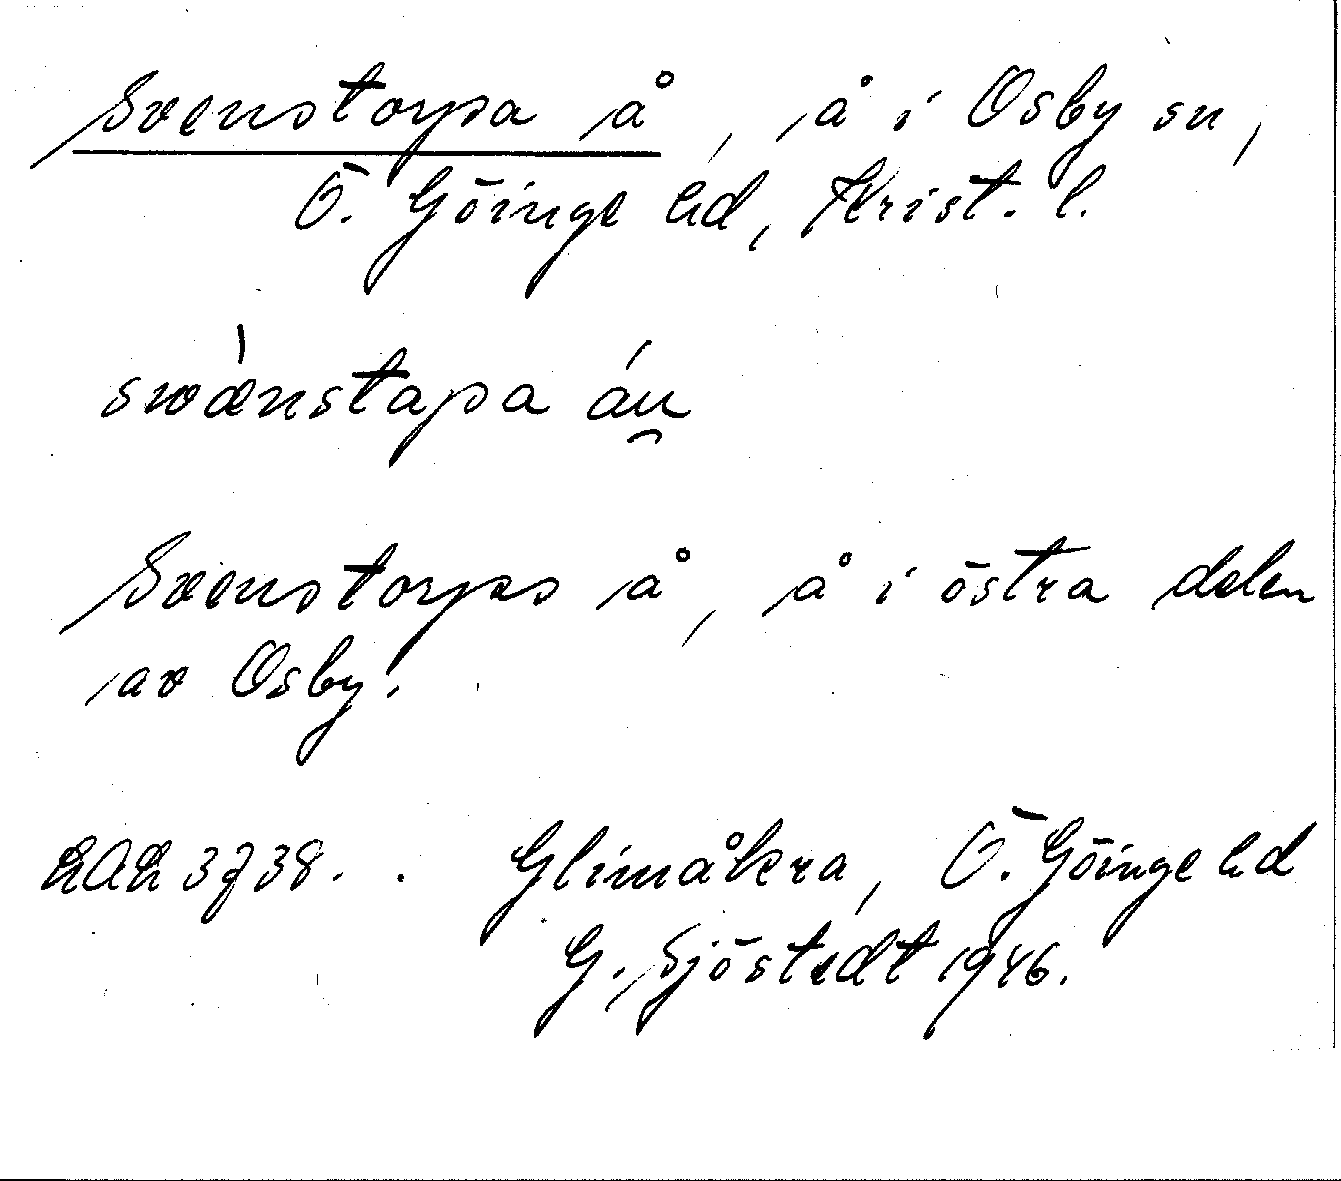 Svenstorpa å, å i Osby sn,
Ö. Göinge hd, Krist. l.
swænstapa áu̯
Svenstorps å, å i östra delen
av Osby.
LAL 3738. . Glimåkra, Ö. Göinge hd
G. Sjöstedt 1946.